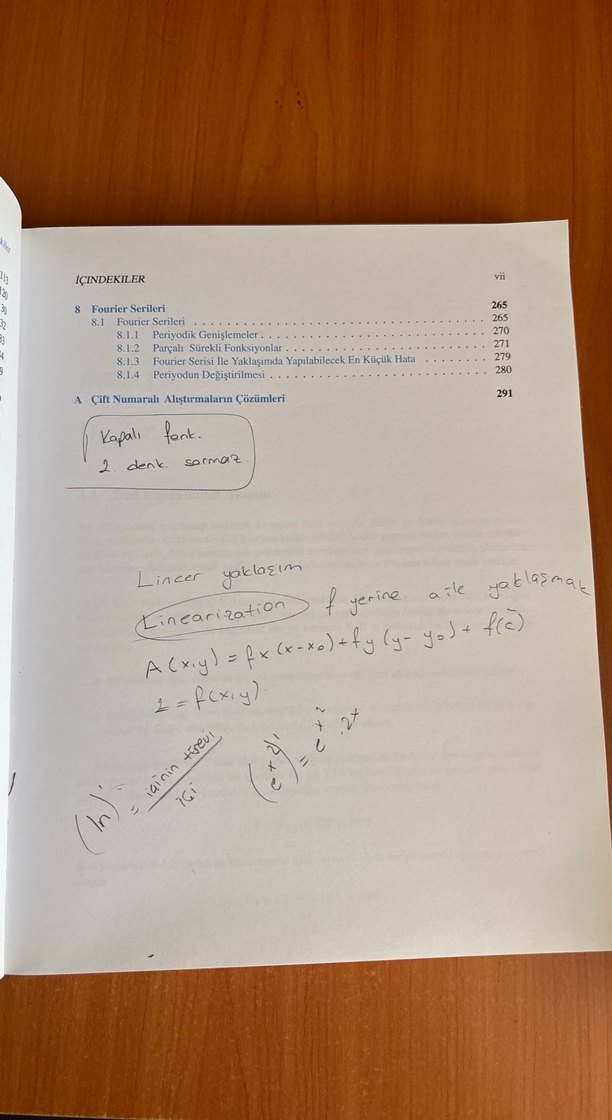 İÇINDEKILER vii
8 Fourier Serileri 265
8.1 Fourier Serileri 265
8.1.1 Periyodik Genişlemeler 270
8.1.2 Parçalı Sürekli Fonksiyonlar 271
8.1.3 Fourier Serisi İle Yaklaşımda Yapılabilecek En Küçük Hata 279
8.1.4 Periyodun Değiştirilmesi 280
A Çift Numaralı Alıştırmaların Çözümleri 291
Kapalı fonk.
2. denk. sormaz.
Lineer yaklaşım
Linearization f yerine a ile yaklaşmak
A(x,y) = fx(x-x₀)+fy(y-y₀)+f(c)
z = f(x,y)
(ln)' = içinin türevi
içi
(e^x²)' = e^x² . 2x
113
120
30
32